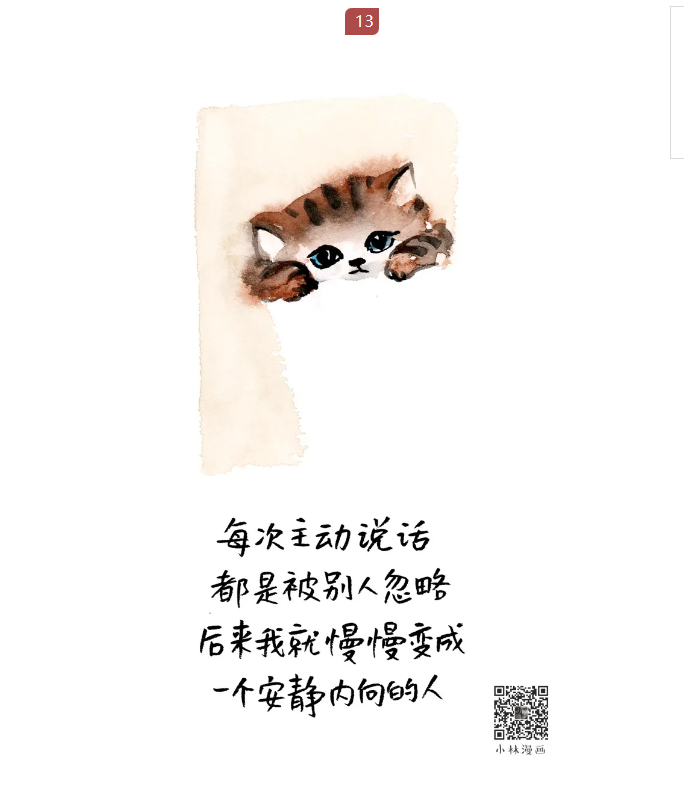 13
每次主动说话
都是被别人忽略
后来我就慢慢变成
一个安静内向的人
小林漫画